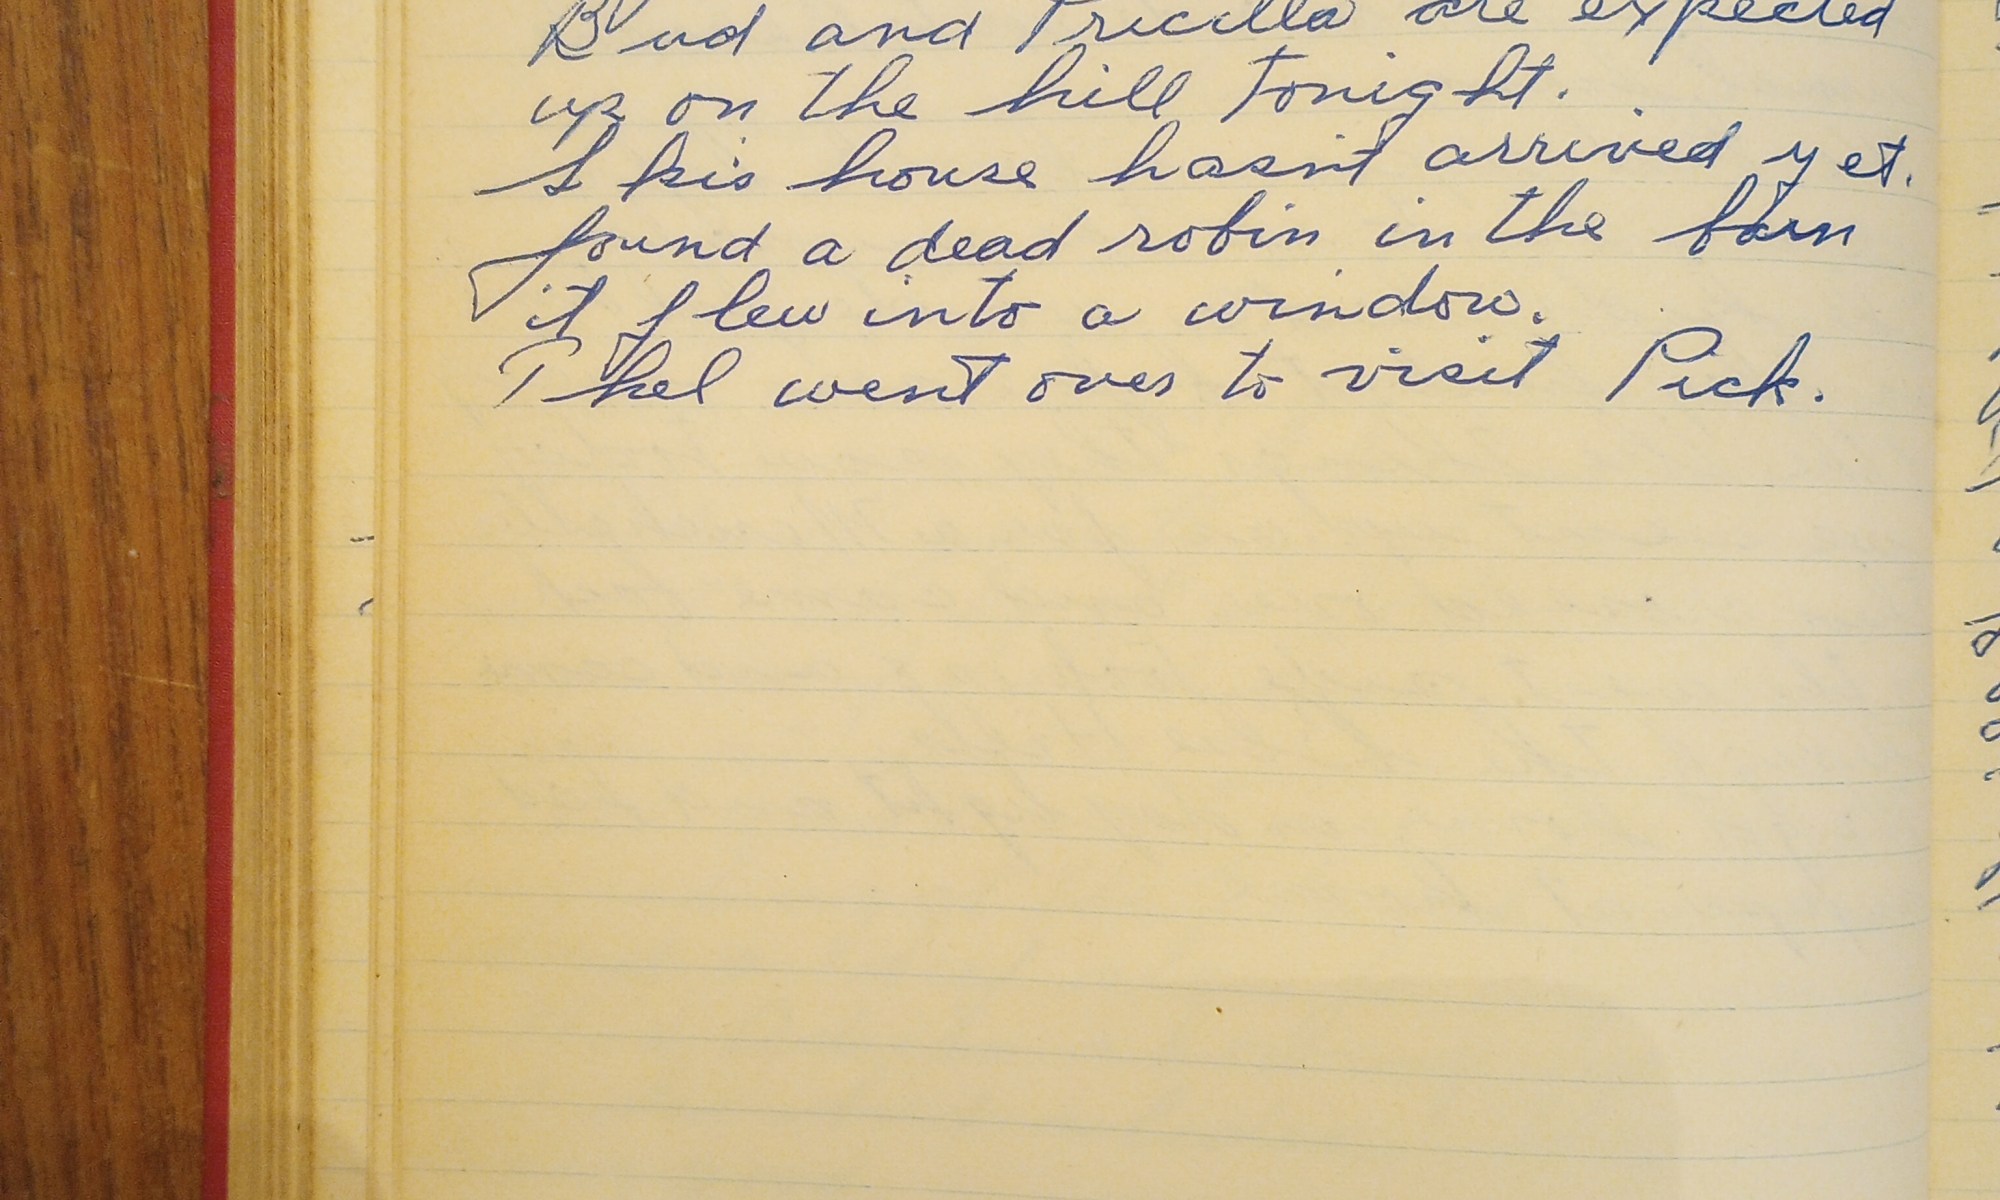 Bud and Pricilla are expected
up on the hill tonight.
Skis house hasn't arrived yet.
found a dead robin in the barn
it flew into a window.
Thel went over to visit Pick.